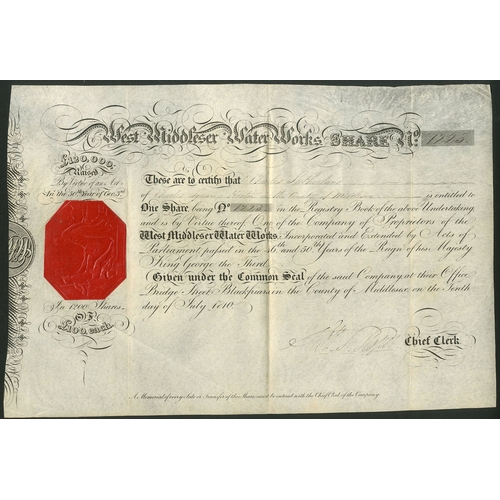 West Middlesex Water Works SHARE No.
£120,000.
Raised
By Virtue of an Act
In the 50th Year of Geo. 3rd
In 1200 Shares
OF
£100, each.
These are to certify that
of is entitled to
One Share being No in the Registry Book of the above Undertaking
and is by Virtue thereof One of the Company of Proprietors of the
West Middlesex Water Works. Incorporated and Extended by Acts of
Parliament passed in the 46th and 50th Years of the Reign of his Majesty
King George the Third.
Given under the Common Seal of the said Company at their Office
Bridge Street Blackfriars in the County of Middlesex, on the Tenth
day of July 1810.
Chief Clerk
A Memorial of every Sale or Transfer of this Share must be entered with the Chief Clerk of the Company.